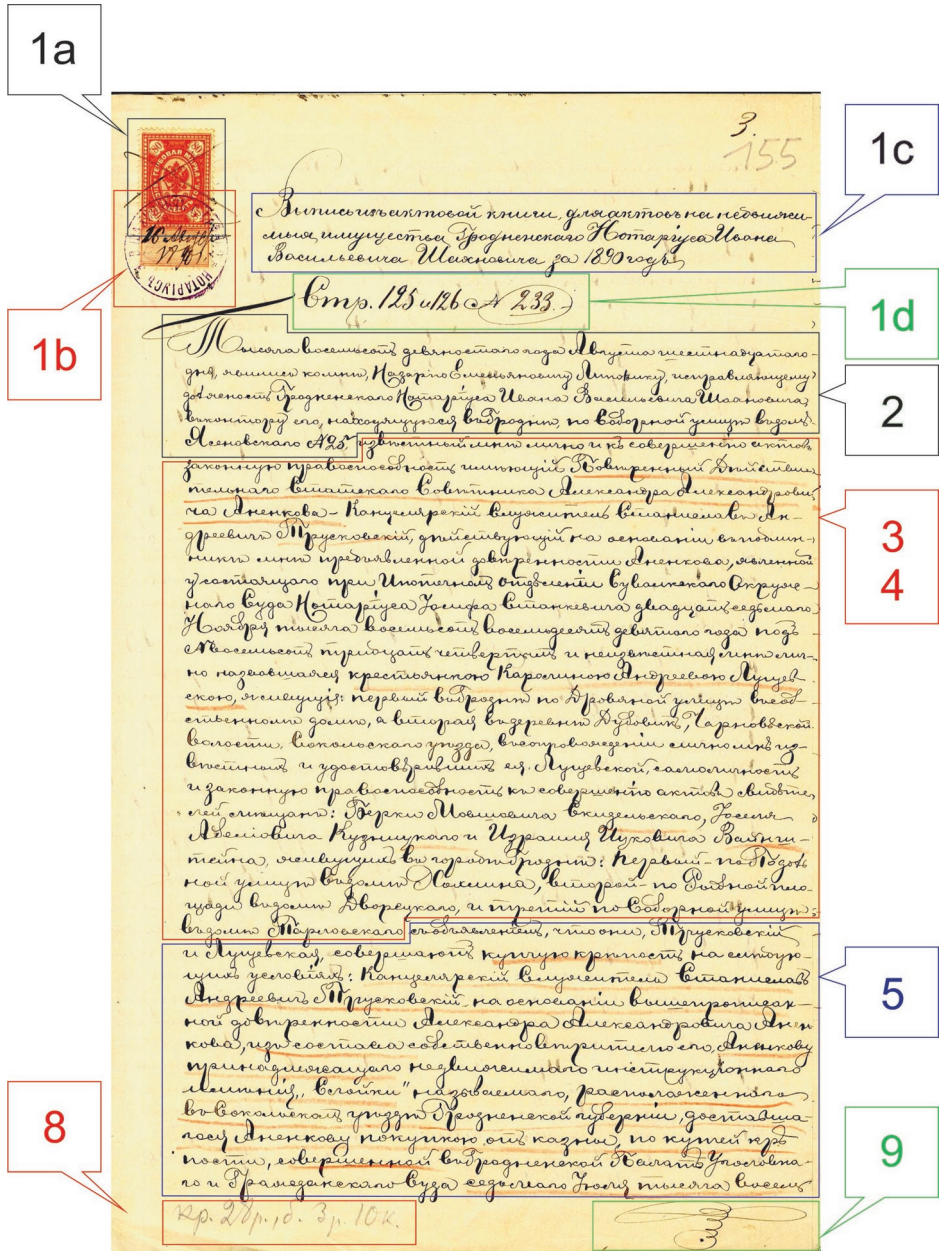 1a
3.
155
1c
80 80
ГЕРБОВАЯ МАРКА
16 Августа
1890 г.
НОТАРІУСЪ
1b
Выпись изъ актовой книги для актовъ на недвижи-
мыя имущества Гродненскаго Нотаріуса Ивана
Васильевича Шахновича за 1890 годъ
1d
Стр. 125 и 126 № 233.
2
Тысяча восемьсотъ девяностаго года Августа шестнадцатаго
дня, явились ко мнѣ, Назарію Емельяновичу исправляющему
должность Гродненскаго Нотаріуса Ивана Васильевича Шахновича,
въ контору его, находящуюся въ Гродне, по Соборной улицѣ въ домѣ
Ясеновскаго № 25, извѣстный мнѣ лично и къ совершенію актовъ
законную правоспособность имѣющій Повѣренный Дѣйстви-
тельнаго Статскаго Совѣтника Александра Александрови-
ча Аненкова - Канцелярскій Служитель Станиславъ Ан-
дреевичъ Трусковскій, дѣйствующій на основаніи въ подлин-
никѣ мнѣ предъявленной довѣренности Аненкова, явленной
у состоящаго при Ипотечномъ отдѣленіи Сувалкскаго Окруж-
наго Суда Нотаріуса Іосифа Станкевича двадцать седьмаго
Ноября тысяча восемьсотъ восемьдесятъ девятаго года подъ
№ восемьсотъ тридцать четвертымъ и неизвѣстная мнѣ лич-
но назвавшаяся крестьянкою Каролиною Андреевою Лущев-
скою, жительствующія: первый въ Гродне по Дровяной улицѣ въ соб-
ственномъ домѣ, а вторая въ деревнѣ Дубовикъ, Чарновской
волости, Сокольскаго уѣзда, въ сопровожденіи лично мнѣ из-
вѣстныхъ и удостовѣрившихъ ея, Лущевской, самоличность
и законную правоспособность къ совершенію актовъ свидѣте-
лей мѣщанъ: Берки Мовшовича Скидельскаго, Іоселя
Абелиовича Кузницкаго и Израиля Ицковича Вайнш-
тейна, живущихъ въ городѣ Гродне: первый - по
ной улицѣ въ домѣ второй - по Рыбной пло-
щади въ домѣ Дворецкаго, и третій по Соборной улицѣ
въ домѣ Тарловскаго съ объявленіемъ, что они, Трусковскій
и Лущевская, совершаютъ купчую крѣпость на слѣдую-
щихъ условіяхъ: Канцелярскій Служитель Станиславъ
Андреевичъ Трусковскій на основаніи вышепрописан-
ной довѣренности Александра Александровича Анен-
кова, изъ состава собственно вѣрителю его, Аненкову
принадлежащаго недвижимаго инструкціоннаго
имѣнія, „Стойки" называемаго, расположеннаго
въ Сокольскомъ уѣздѣ Гродненской губерніи, доставша-
гося Аненкову покупкою отъ казны, по купчей крѣ-
пости, совершенной въ Гродненской Палатѣ Уголовна-
го и Гражданскаго Суда седьмаго Іюля тысяча восемь
3
4
5
8
кр. 28р., б. 3р. 10к.
9